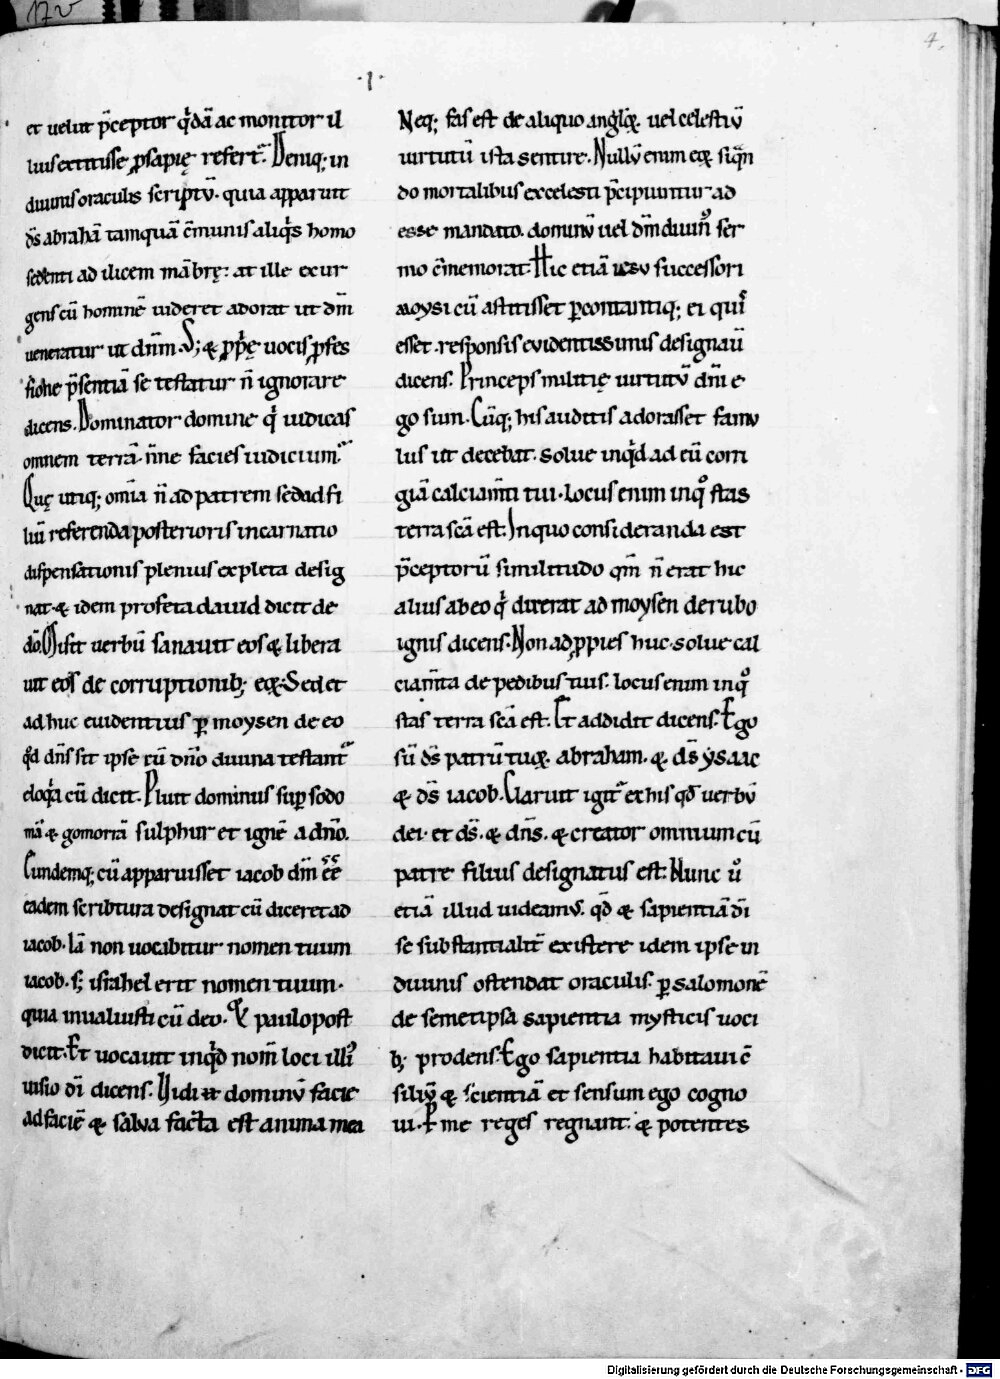 172
4.
·I·
et uelut p̄ceptor q'dā ac monitor il
lius extitisse ꝓsapię refert᷑. Deniq; in
diuinis oraculis scriptū. quia apparuit
d̄s abrahā tamquā c̄munis aliq's homo
sedenti ad ilicem mābrę: at ille exur
gens cū hominē uideret adorat ut dm̄
ueneratur ut dn̄m. S; & ꝓp̄ę uocis ꝓfes
sione p̄sentiā se testatur n̄ ignorare
dicens. Dominator domine q' iudicas
omnem terrā. n̄ne facies iudicium.
Quę utiq; om̄ia n̄ ad patrem sed ad fi
liū referenda posterioris incarnatio
dispensationis plenius expleta desig
nat. & idem profeta dauid dicit de
dō. Misit uerbū sanauit eos & libera
uit eos de corruptionib; eoꝝ. Sed et
adhuc euidentius ꝑ moysen de eo
qd̓ dn̄s sit ipse cū dn̄o diuina testant᷑
eloq̓a cū dicit. Pluit dominus suꝑ sodo
mā & gomorrā sulphur et ignē a dn̄o.
Eundemq; cū apparuisset iacob dm̄ ēē
eadem scribtura designat cū diceret ad
iacob. Iā non uocabitur nomen tuum
iacob. s; israhel erit nomen tuum.
quia inualuisti cū deo. & paulo post
dicit. Et uocauit inq'd nom̄ loci illi'
uisio dī dicens. Vidi dominū facie
ad faciē & salua facta est anima mea
Neq; fas est de aliquo angloꝝ. uel celestiū
uirtutū ista sentire. Nullū enim eoꝝ siqn̄
do mortalibus ex celesti p̄cipiuntur ad
esse mandato. dominū uel dm̄ diuin' ser
mo c̄memorat. Hic etiā iesu successori
moysi cū astitisset ꝑcontantiq; ei quis
esset. responsis euidentissimis designaū
dicens. Princeps militię uirtutū dn̄i e
go sum. Cūq; his auditis adorasset famu
lus ut decebat. solue inq'd ad eū corri
giā calciam̄ti tui. locus enim in q° stas
terra sc̄a est. In quo consideranda est
p̄ceptorū similitudo qm̄ n̄ erat hic
alius ab eo q' dixerat ad moysen de rubo
ignis dicens. Non adꝓpies huc. solue cal
ciam̄ta de pedibus tuis. locus enim in q°
stas terra sc̄a est. Et addidit dicens. Ego
sū d̄s patrū tuoꝝ. abraham. & d̄s ysaac
& d̄s iacob. Claruit igit᷑ ex his qd̓ uerbū
dei. et d̄s. & dn̄s. & creator omnium cū
patre filius designatus est. Nunc u°
etiā illud uideamus. qd̓ & sapientiā dī
se substantialit᷑ existere idem ipse in
diuinis ostendat oraculis. ꝑ salomonē
de semetipsa sapientia mysticis uoci
b; prodens. Ego sapientia habitaui c̄
siliū & scientiā et sensum ego cogno
ui. P me reges regnant. & potentes
Digitalisierung gefördert durch die Deutsche Forschungsgemeinschaft - DFG